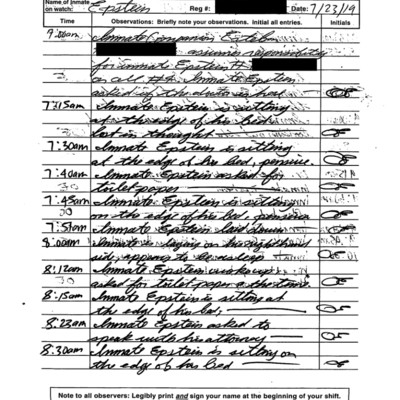 Name of Inmate
on watch: Epstein Reg #: Date: 7/23/19
Time Observations: Briefly note your observations. Initial all entries. Initials
Inmate Companion
assumes responsibility
for inmate Epstein #
Inmate Epstein
7:15am Inmate Epstein is sitting
at the edge of his bed
lost in thought
7:30am Inmate Epstein is sitting
at the edge of his bed, pensive.
7:40am Inmate Epstein asked for
toilet paper
7:45am Inmate Epstein is sitting
on the edge of his bed, pensive
7:51am Inmate Epstein laid down
8:00am Inmate is laying on his right hand
side, appears to be asleep
8:12am Inmate Epstein woke up
asked for toilet paper
8:15am Inmate Epstein is sitting at
the edge of his bed,
8:23am Inmate Epstein asked to
speak with his attorney
8:30am Inmate Epstein is sitting on
the edge of his bed
Note to all observers: Legibly print and sign your name at the beginning of your shift.